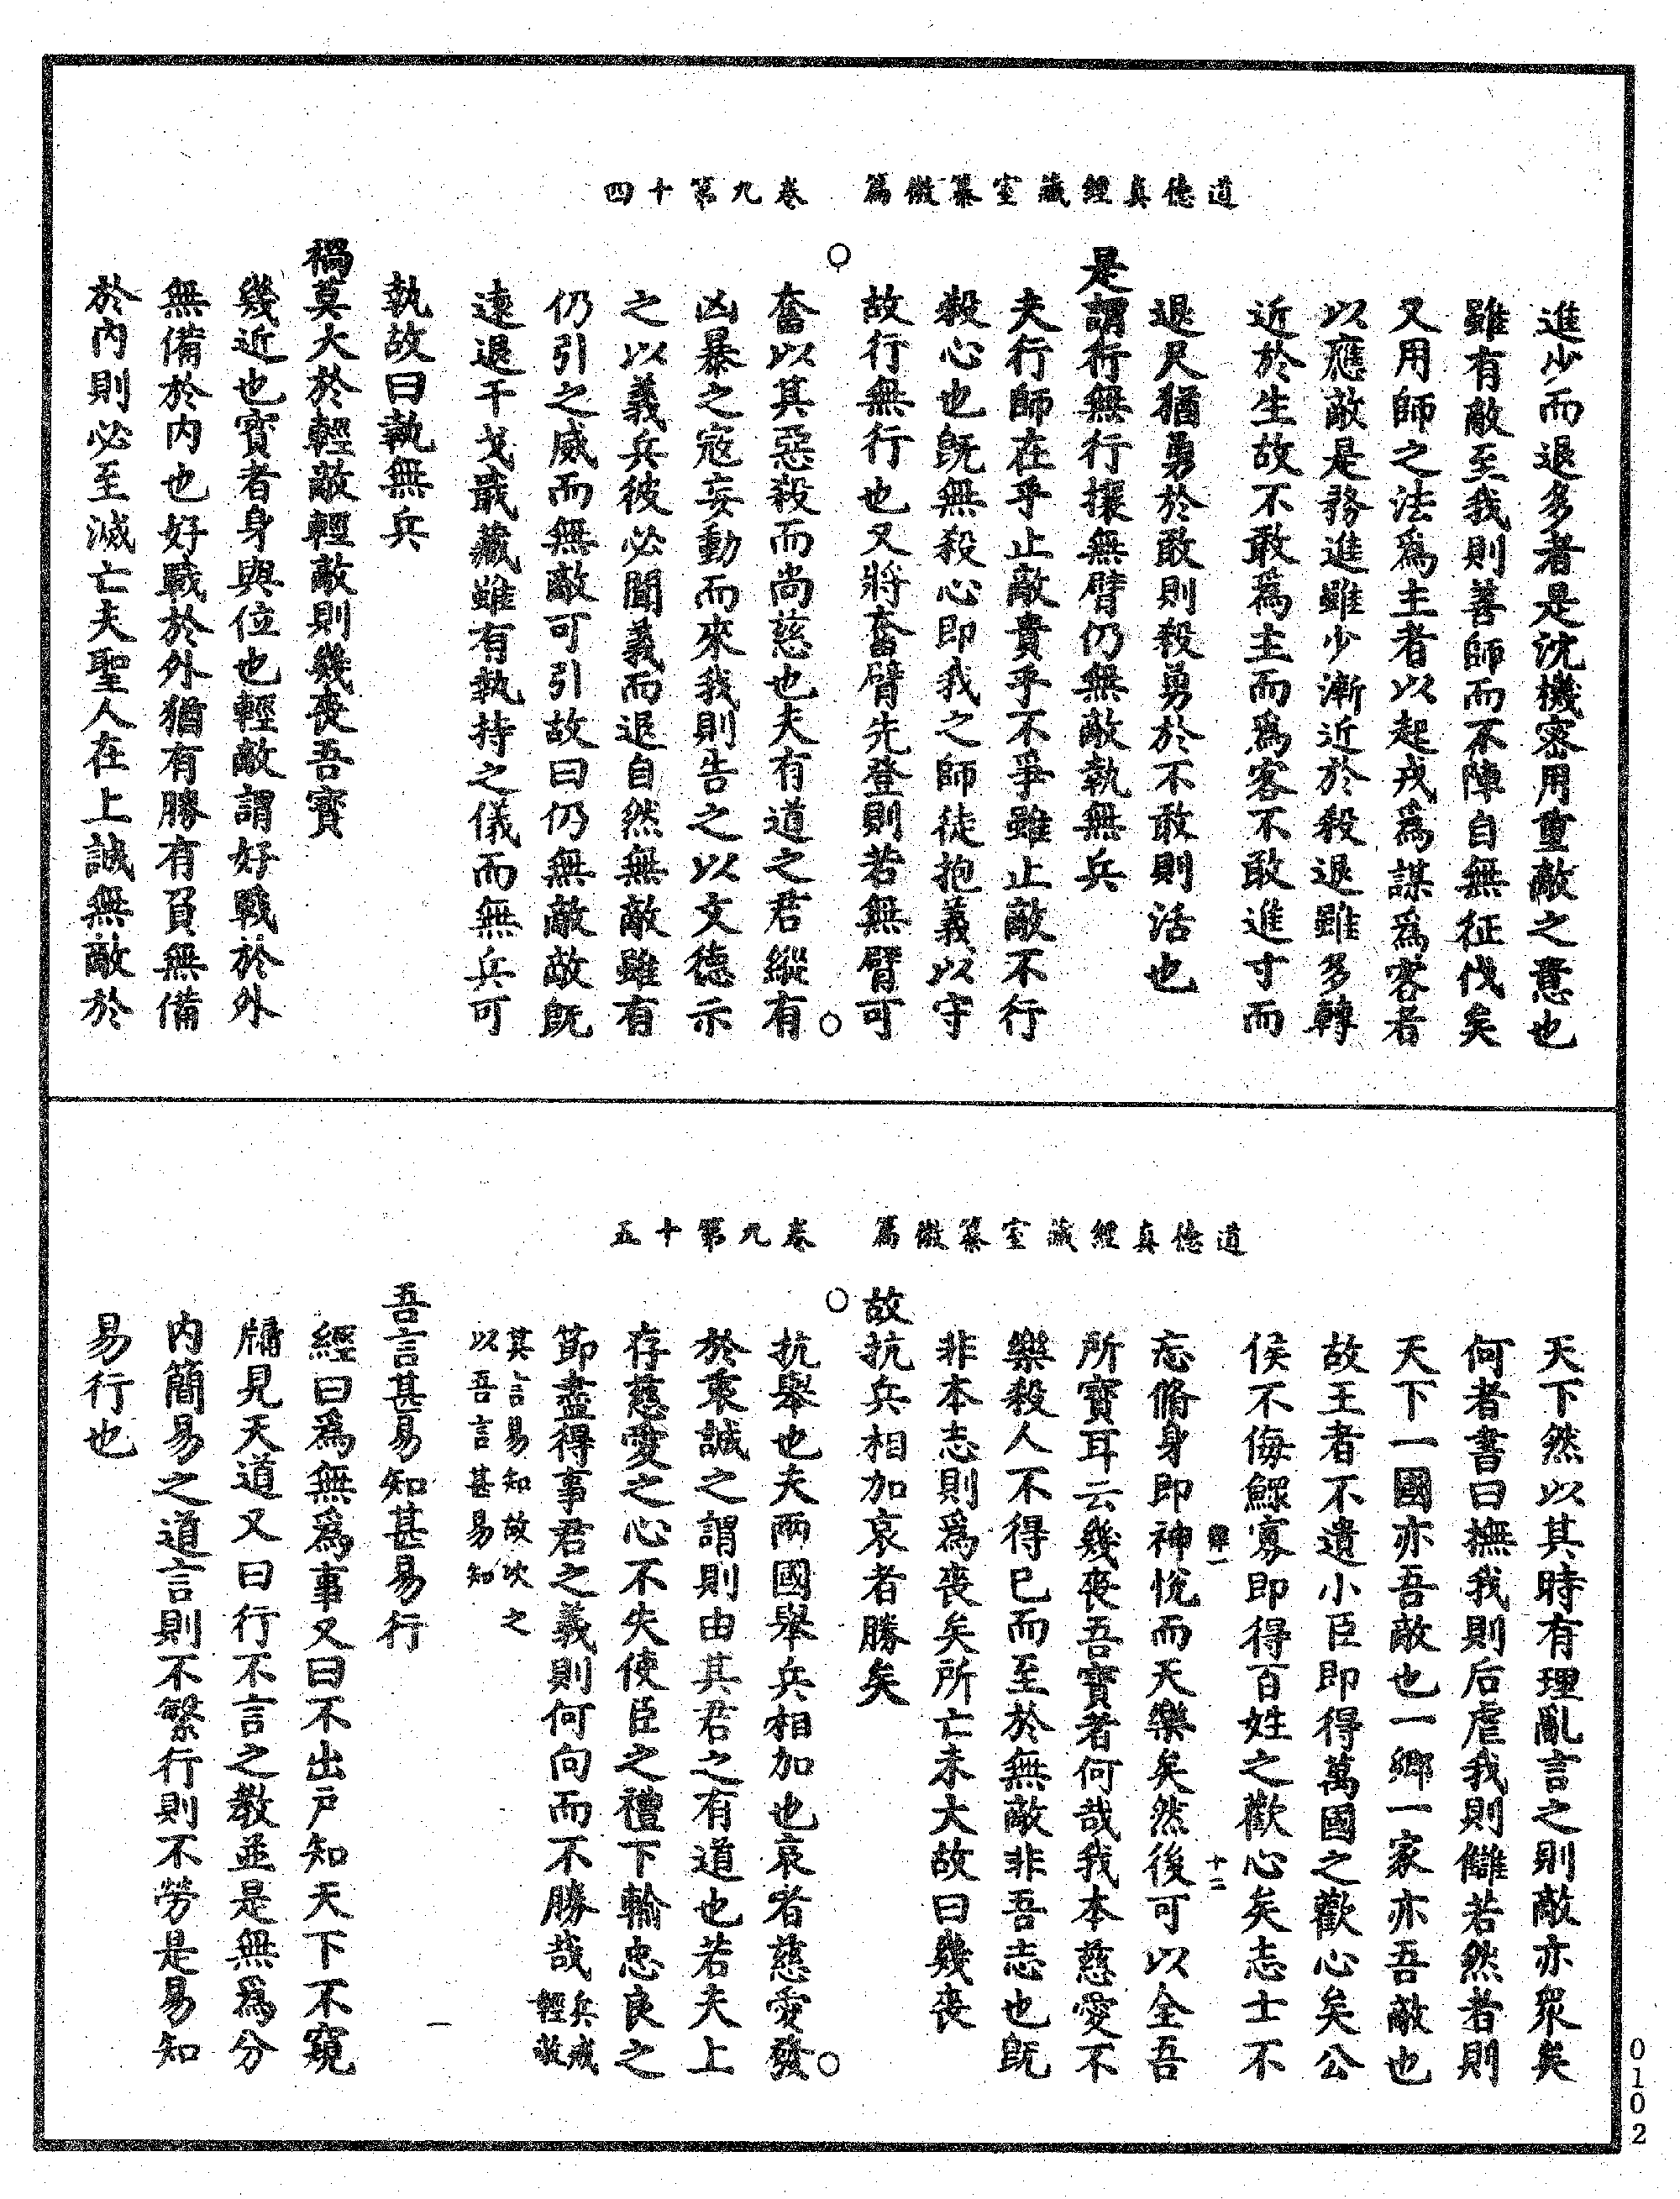 道德真經藏室纂微篇　卷九第十四
進少而退多者是沈機密用重敵之意也
雖有敵至我則善師而不陣自無征伐矣
又用師之法爲主者以起戎爲謀爲客者
以應敵是務進雖少漸近於殺退雖多轉
近於生故不敢爲主而爲客不敢進寸而
退尺猶勇於敢則殺勇於不敢則活也
是謂行無行攘無臂仍無敵執無兵
夫行師在乎止敵貴乎不爭雖止敵不行
殺心也旣無殺心即我之師徒抱義以守
故行無行也又將奮臂先登則若無臂可
奮以其惡殺而尚慈也夫有道之君縱有
凶暴之寇妄動而來我則告之以文德示
之以義兵彼必聞義而退自然無敵雖有
仍引之威而無敵可引故曰仍無敵敵旣
遠退干戈戢藏雖有執持之儀而無兵可
執故曰執無兵
禍莫大於輕敵輕敵則幾喪吾寶
幾近也寶者身與位也輕敵謂好戰於外
無備於內也好戰於外猶有勝有負無備
於內則必至滅亡夫聖人在上誠無敵於
道德真經藏室纂微篇　卷九第十五
天下然以其時有理亂言之則敵亦衆矣
何者書曰撫我則后虐我則讎若然者則
天下一國亦吾敵也一鄉一家亦吾敵也
故王者不遺小臣即得萬國之歡心矣公
侯不侮鰥寡即得百姓之歡心矣志士不
十二
忘脩身即神悅而天樂矣然後可以全吾
所寶耳云幾喪吾寶者何哉我本慈愛不
樂殺人不得已而至於無敵非吾志也旣
非本志則爲喪矣所亡未大故曰幾喪
故抗兵相加哀者勝矣
抗舉也夫兩國舉兵相加也哀者慈愛發
於衷誠之謂則由其君之有道也若夫上
存慈愛之心不失使臣之禮下輸忠良之
節盡得事君之義則何向而不勝哉兵戒輕敵
其言易知故次之以吾言甚易知
吾言甚易知甚易行
經曰爲無爲事又曰不出戶知天下不窺
牖見天道又曰行不言之教並是無爲分
內簡易之道言則不繁行則不勞是易知
易行也
0102